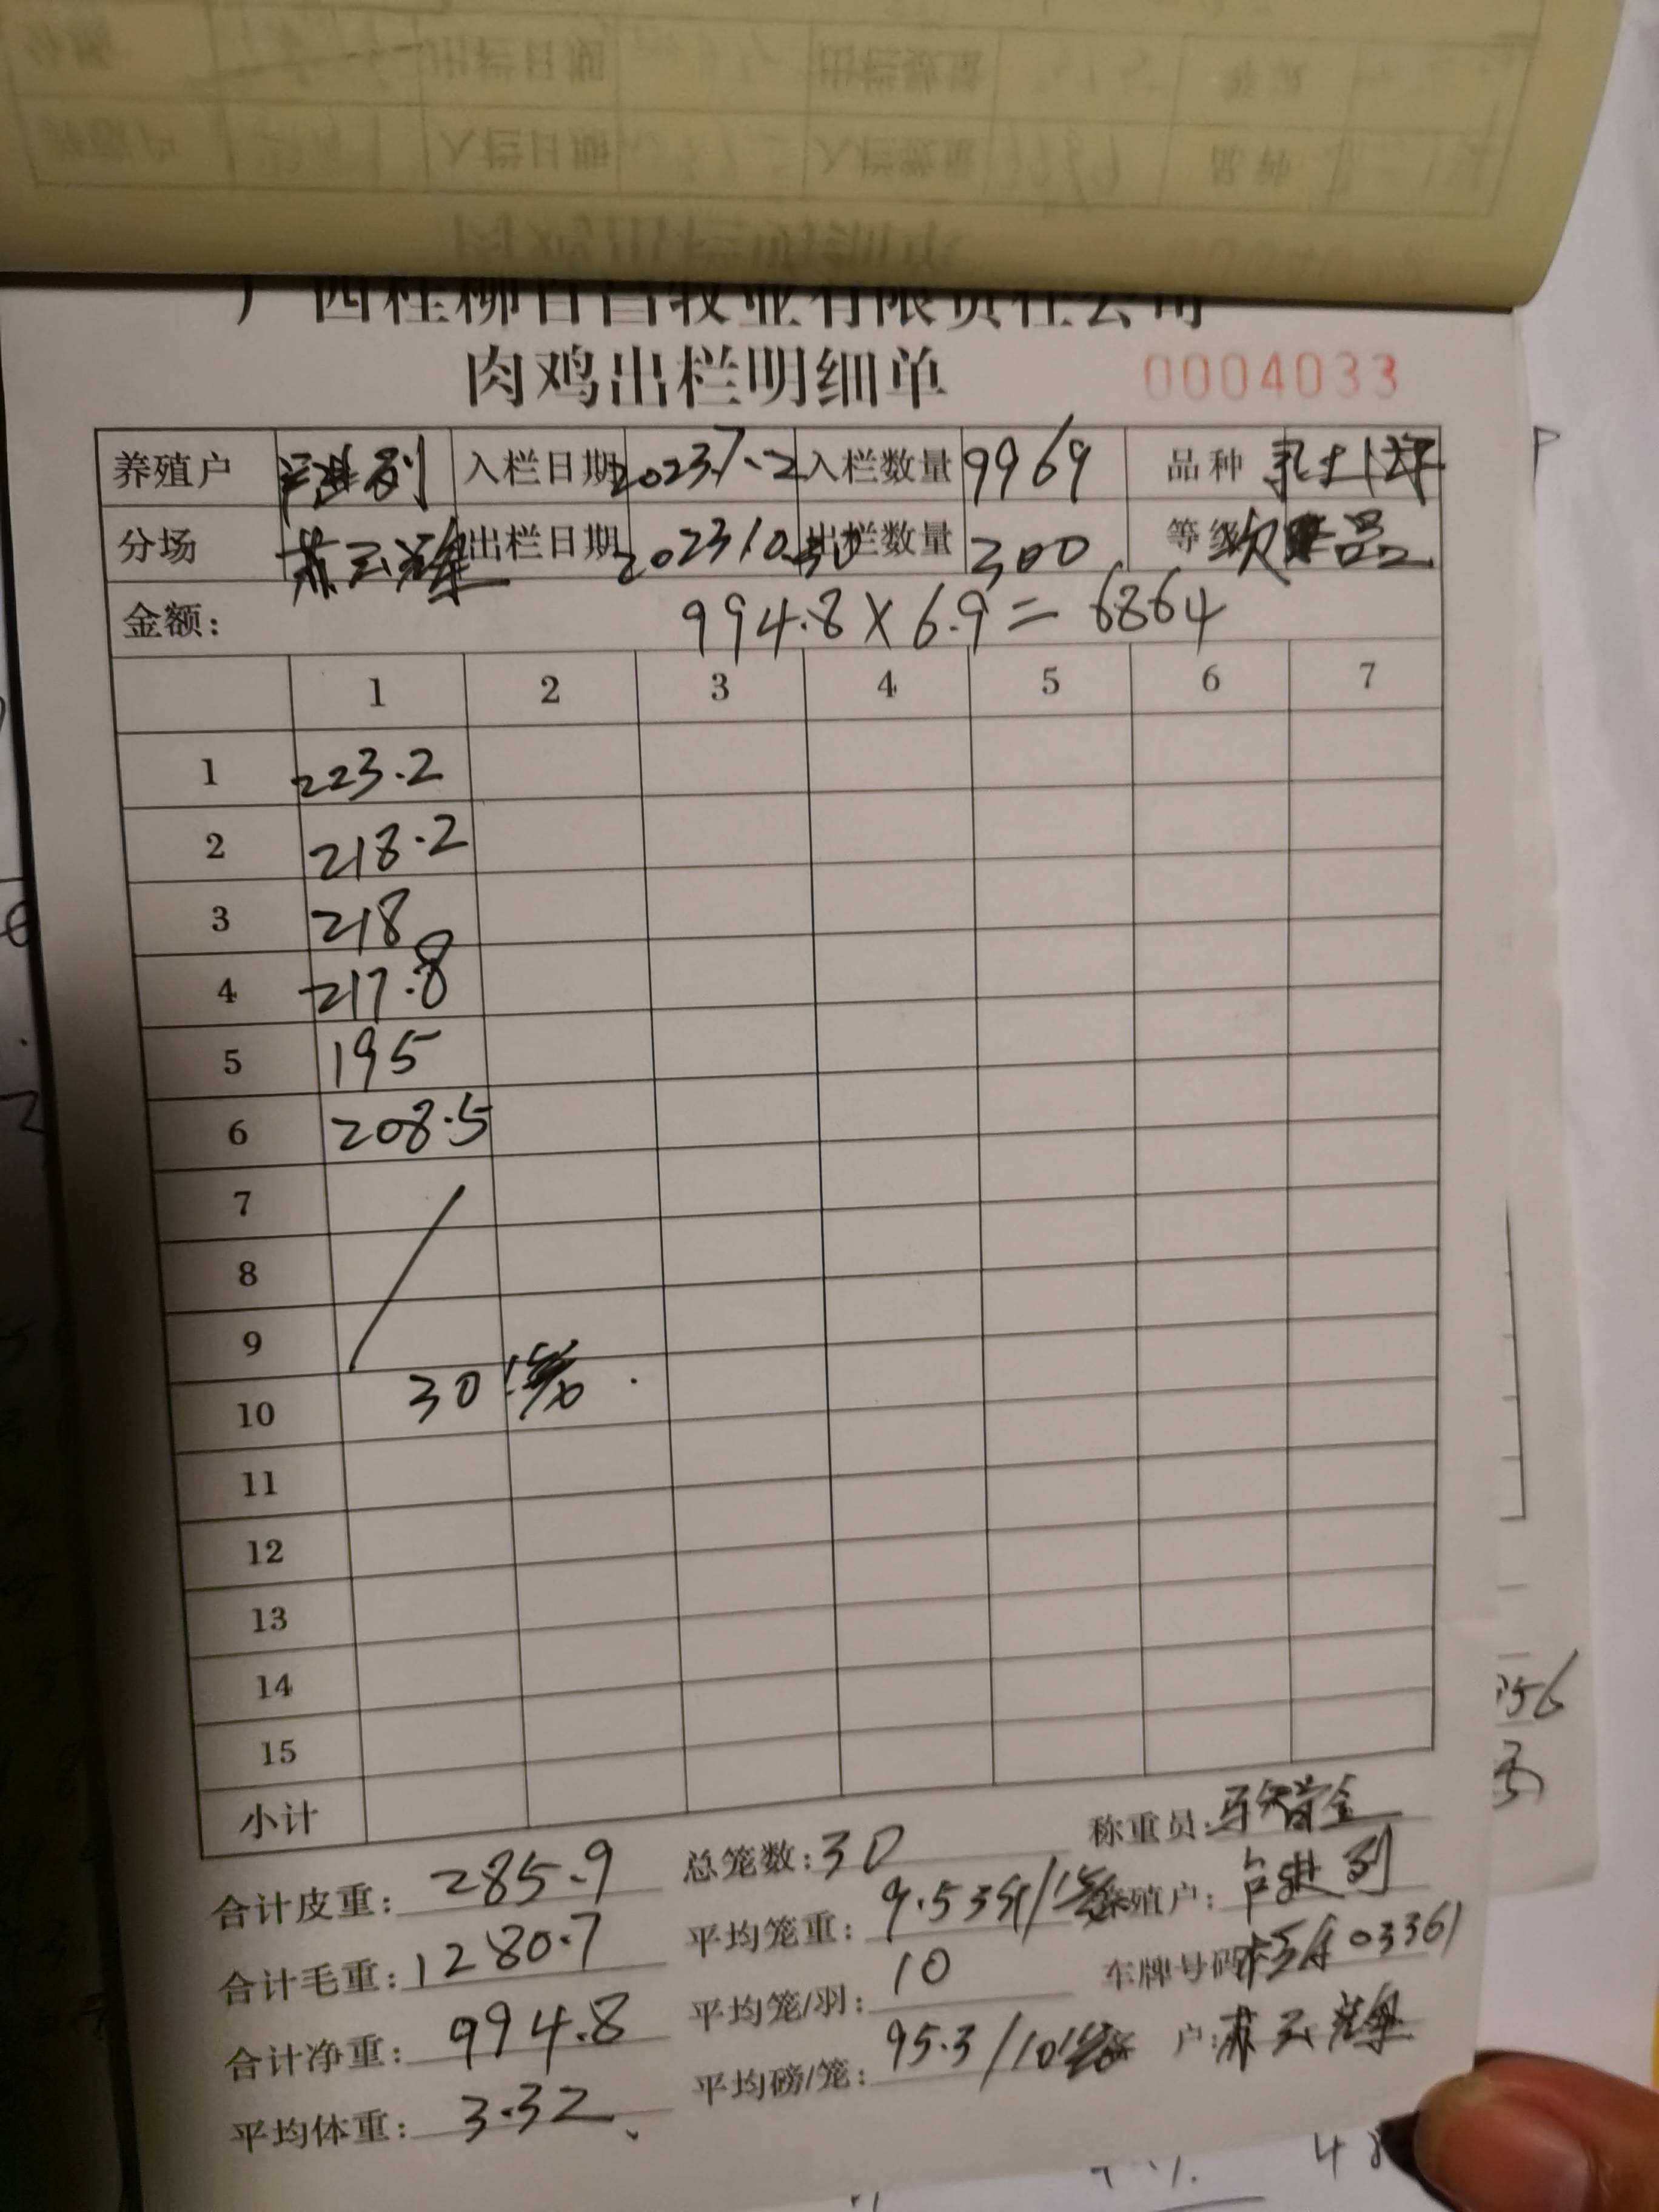 广西桂柳百昌牧业有限责任公司
肉鸡出栏明细单 0004033
养殖户 入栏日期 2023.7.2 入栏数量 9969 品种
分场 苏云辉 出栏日期 2023.10.30 出栏数量 300 等级 次品
金额: 994.8×6.9=6864
1 2 3 4 5 6 7
1 223.2
2 218.2
3 218
4 217.8
5 195
6 208.5
7
8
9
10 30
11
12
13
14
15
小计
合计皮重: 285.9 总笼数: 30 称重员:
合计毛重: 1280.7 平均笼重: 9.53斤/ 养殖户:
合计净重: 994.8 平均笼/羽: 10 车牌号码: 03361
平均体重: 3.32 平均磅/笼: 95.3/10 户: 苏云辉